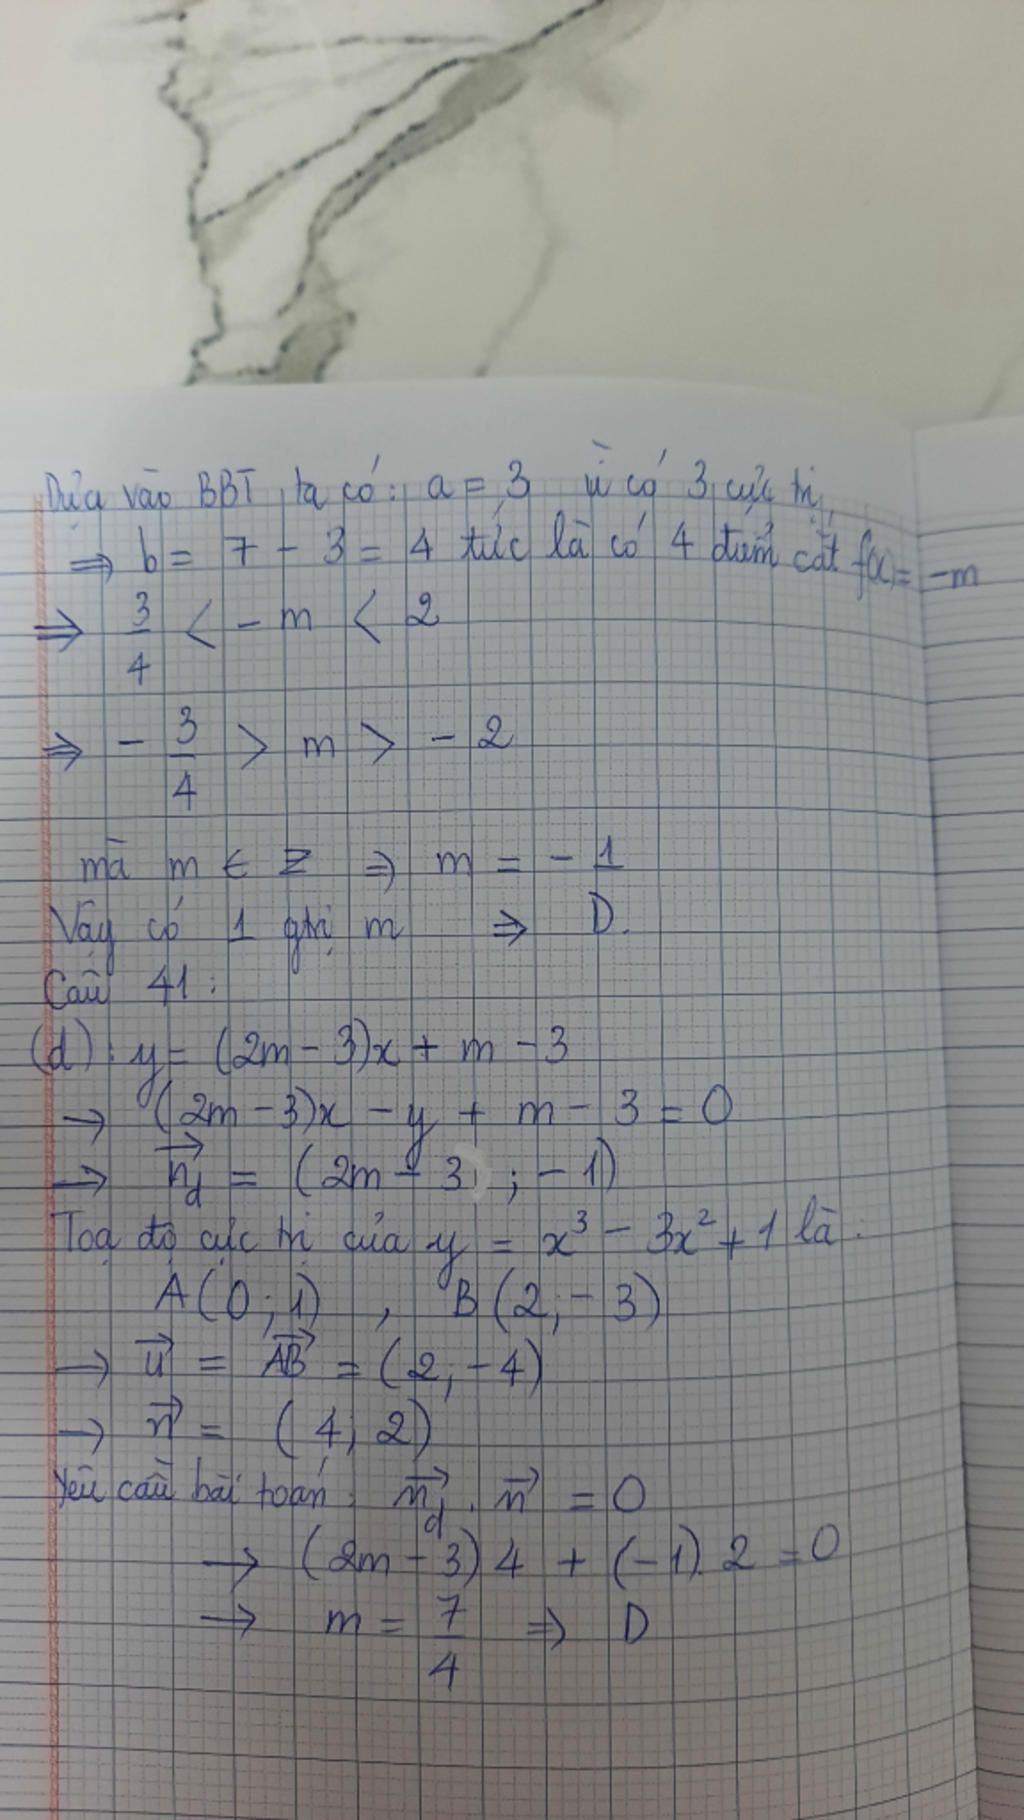 Dựa vào BBT ta có: a = 3 vì có 3 cực trị
⇒ b = 7 - 3 = 4 tức là có 4 điểm cắt f(x) = -m
⇒ 3/4 < - m < 2
⇒ - 3/4 > m > - 2
mà m ∈ Z ⇒ m = - 1
Vậy có 1 gtrị m ⇒ D.
Câu 41:
(d): y = (2m - 3)x + m - 3
→ (2m - 3)x - y + m - 3 = 0
→ n⃗d = (2m - 3 ; - 1)
Toạ độ cực trị của y = x³ - 3x² + 1 là:
A(0; 1) , B(2; - 3)
→ u⃗ = AB⃗ = (2; -4)
→ n⃗ = (4; 2)
Yêu cầu bài toán: n⃗d . n⃗ = 0
→ (2m - 3) 4 + (-1). 2 = 0
→ m = 7/4 ⇒ D